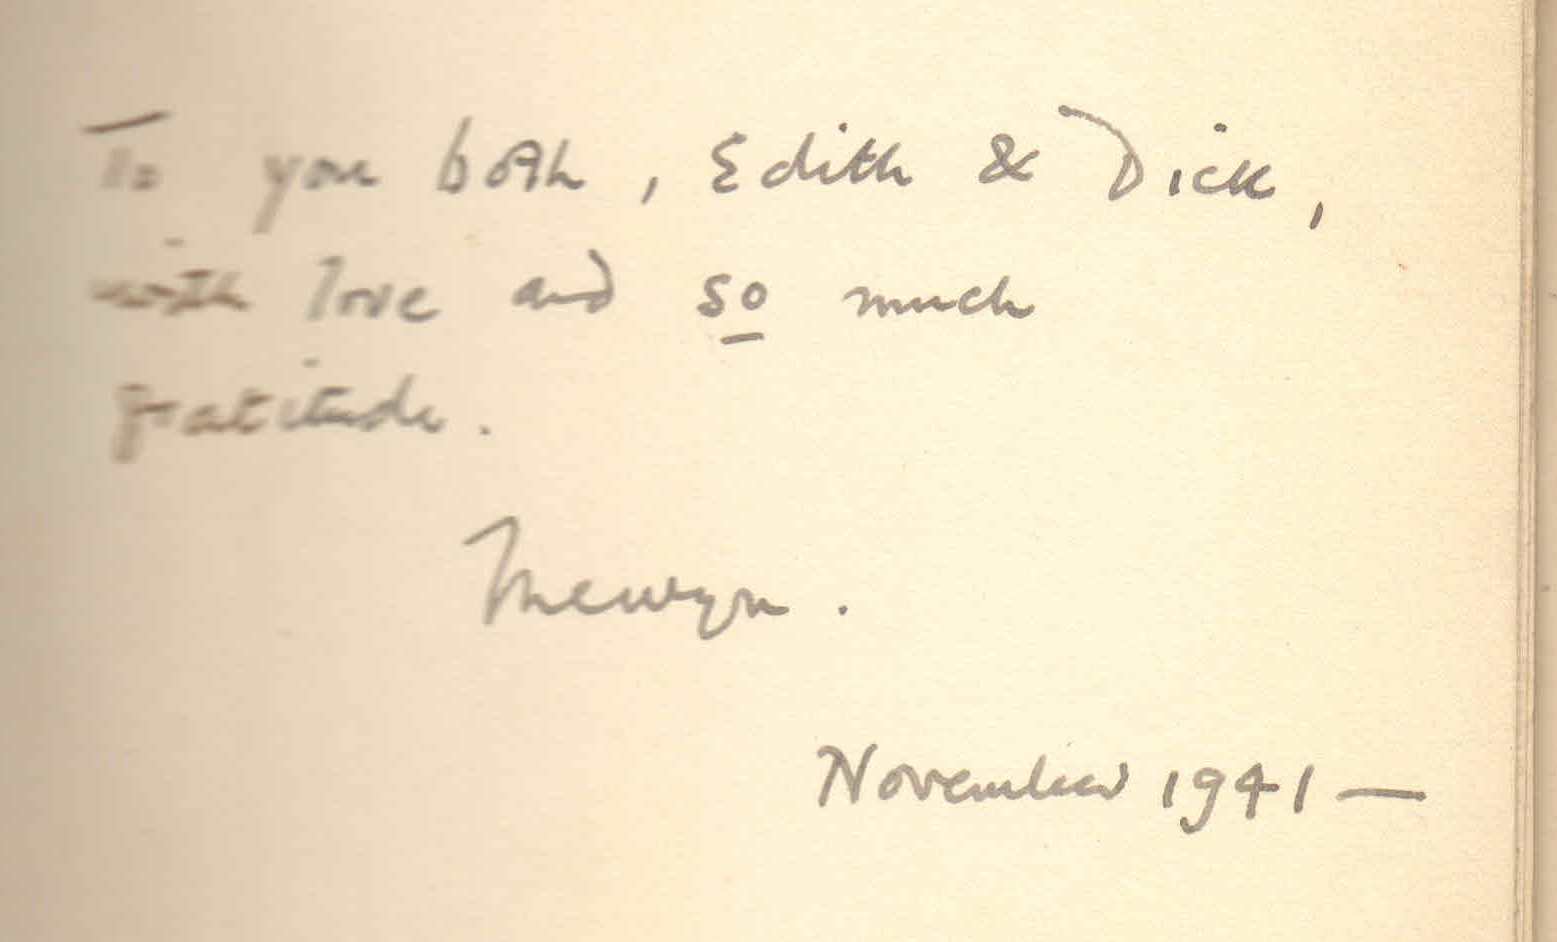 To you both, Edith & Dick,
with love and so much
gratitude.
Mervyn.
November 1941 —